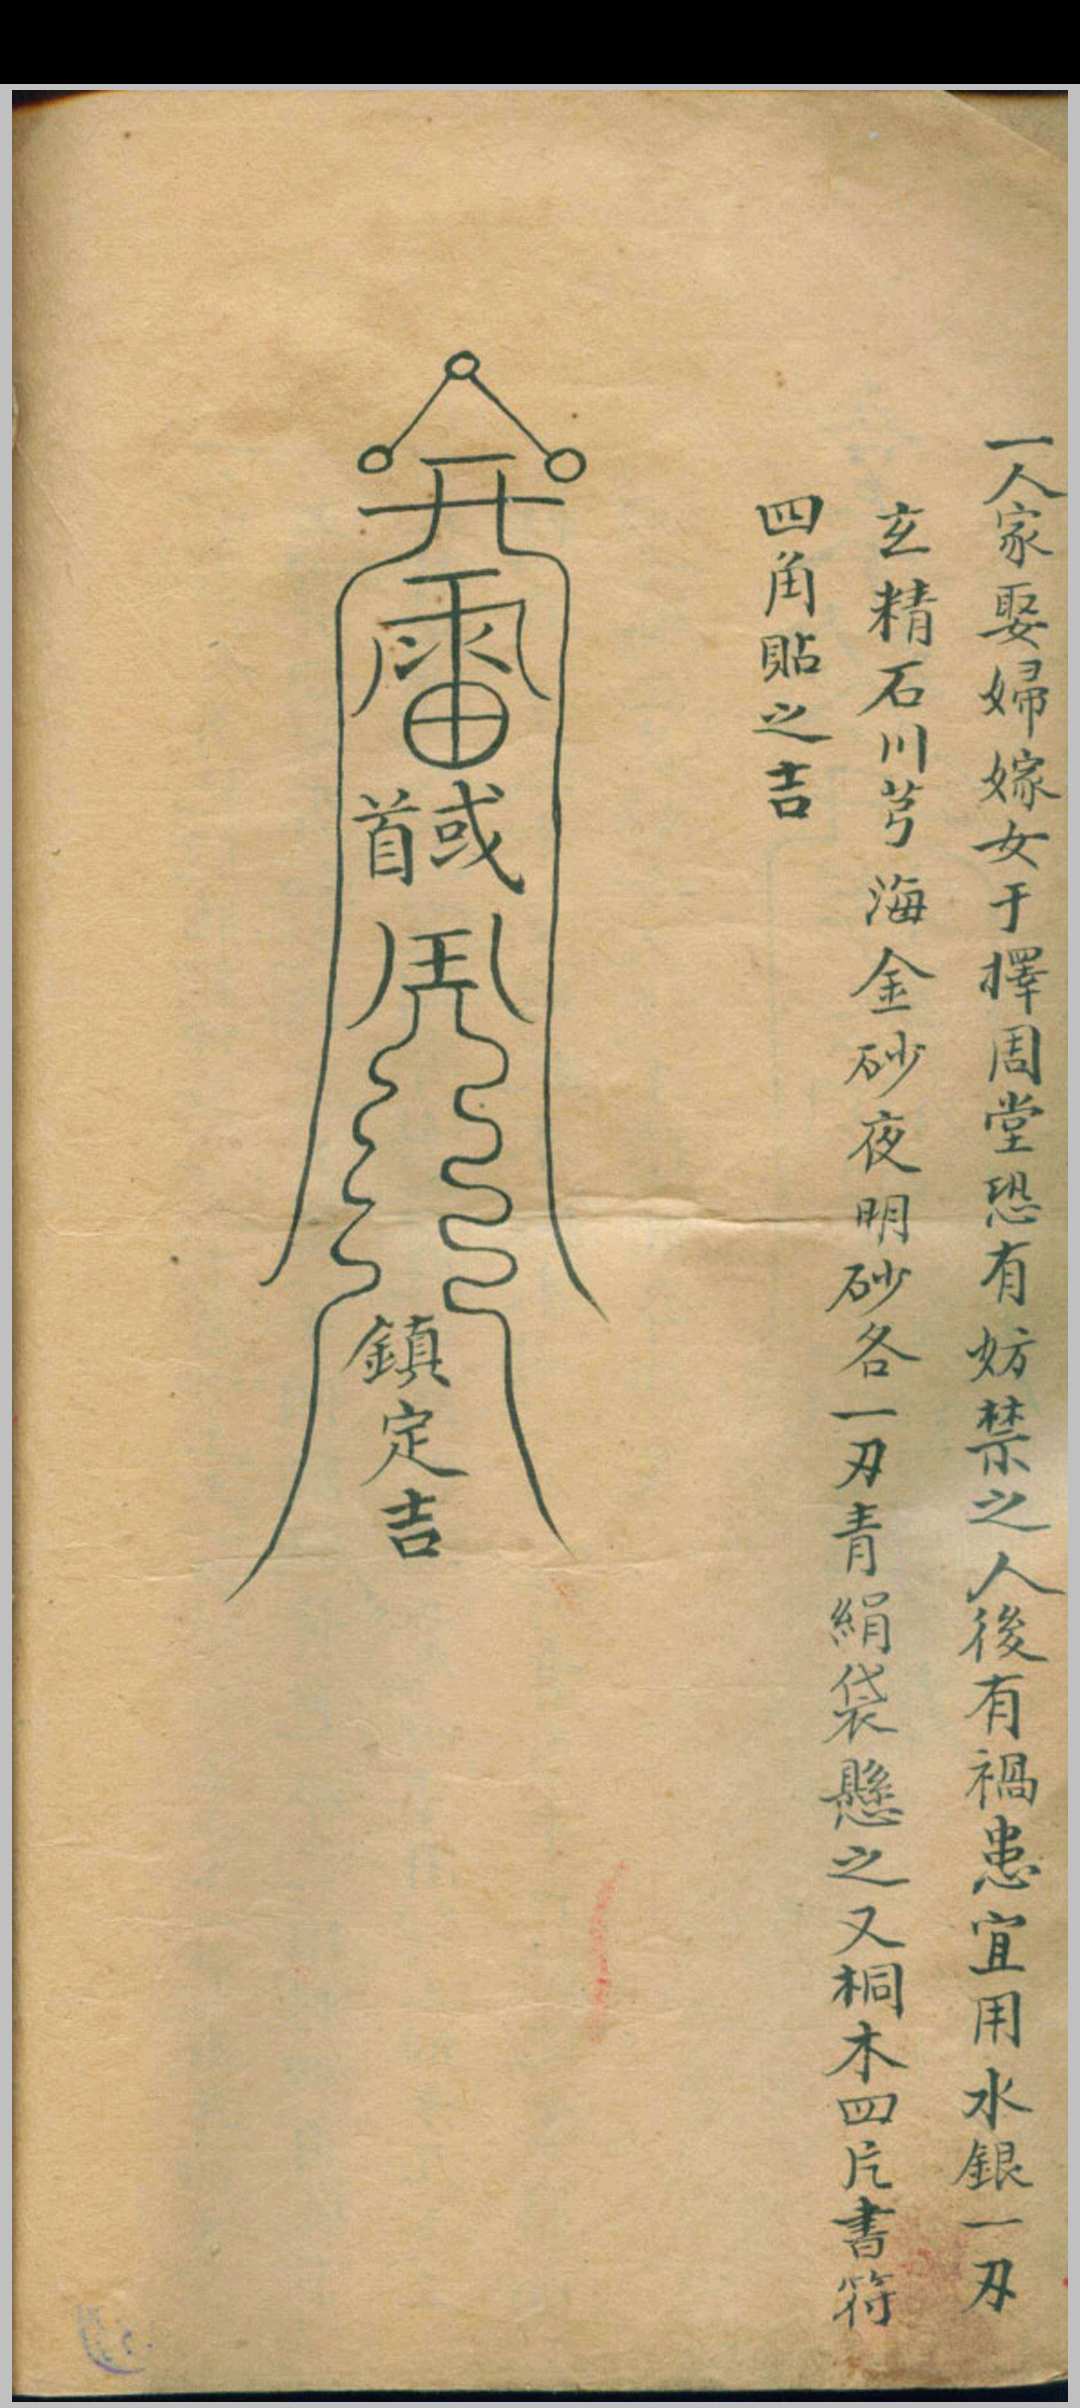 一人家娶婦嫁女于擇周堂恐有妨禁之人後有禍患宜用水銀一刃
玄精石川芎海金砂夜明砂各一刃青絹袋懸之又桐木四片書符
四角貼之吉
首或
鎮定吉